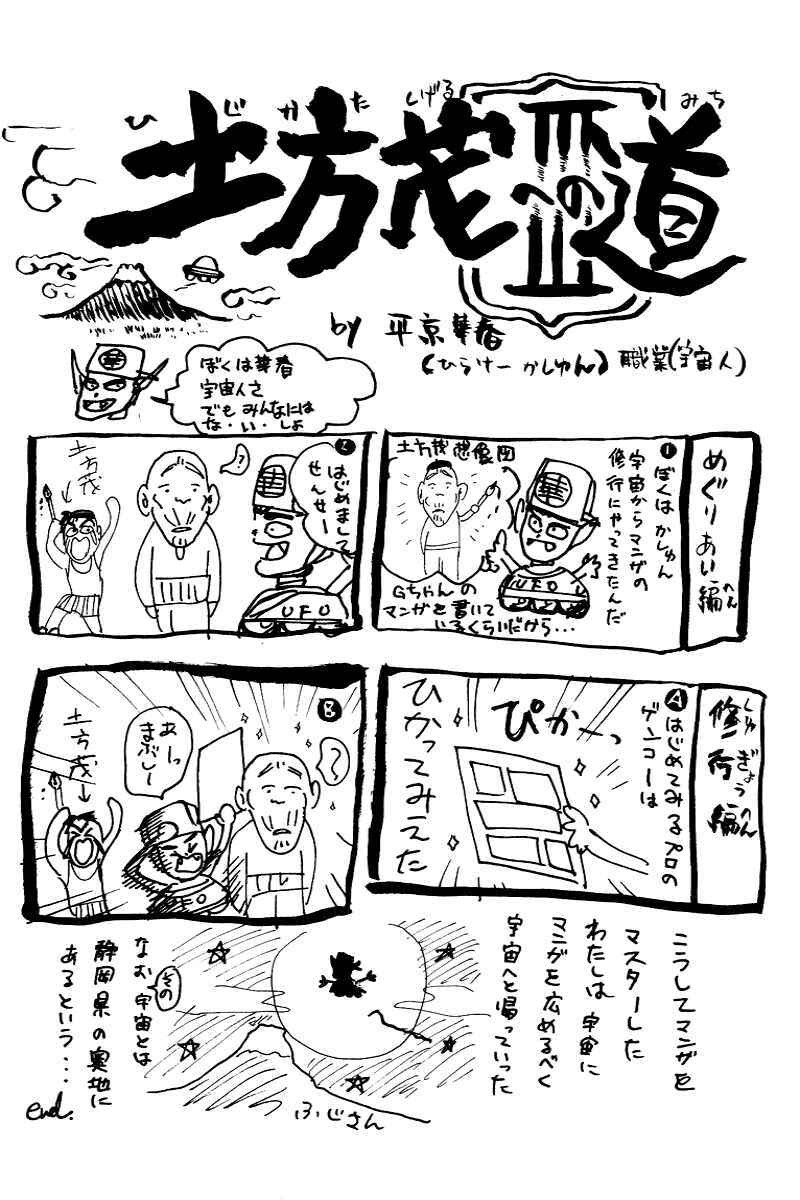 ひじかた しげる みち
土方茂への道
by 平京華春
(ひらけー かしゅん) 職業(宇宙人)
華
ぼくは華春
宇宙人さ
でも みんなには
な・い・しょ
めぐりあい編
へん
1
ぼくは かしゅん
宇宙からマンガの
修行にやってきたんだ
土方茂想像図
華
UFO
Gちゃんの
マンガを書いて
いるくらいだから...
2
はじめまして
せんせー
?
華
UFO
土方茂
修行編
しゅぎょうへん
A
はじめてみるプロの
ゲンコーは
ぴかーっ
ひかってみえた
B
?
あーっ
まぶしー
土方茂
こうしてマンガを
マスターした
わたしは 宇宙に
マンガを広めるべく
宇宙へと帰っていった
ふじさん
なお その 宇宙とは
静岡県の奥地に
あるという...
end.